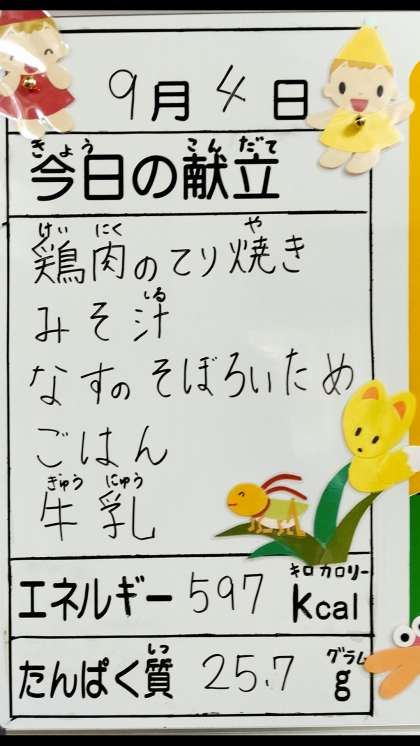 9月4日
きょう こんだて
今日の献立
けい にく や
鶏肉のてり焼き
しる
みそ汁
なすのそぼろいため
ごはん
ぎゅう にゅう
牛乳
キロカロリー
エネルギー 597 kcal
しつ グラム
たんぱく質 25.7 g